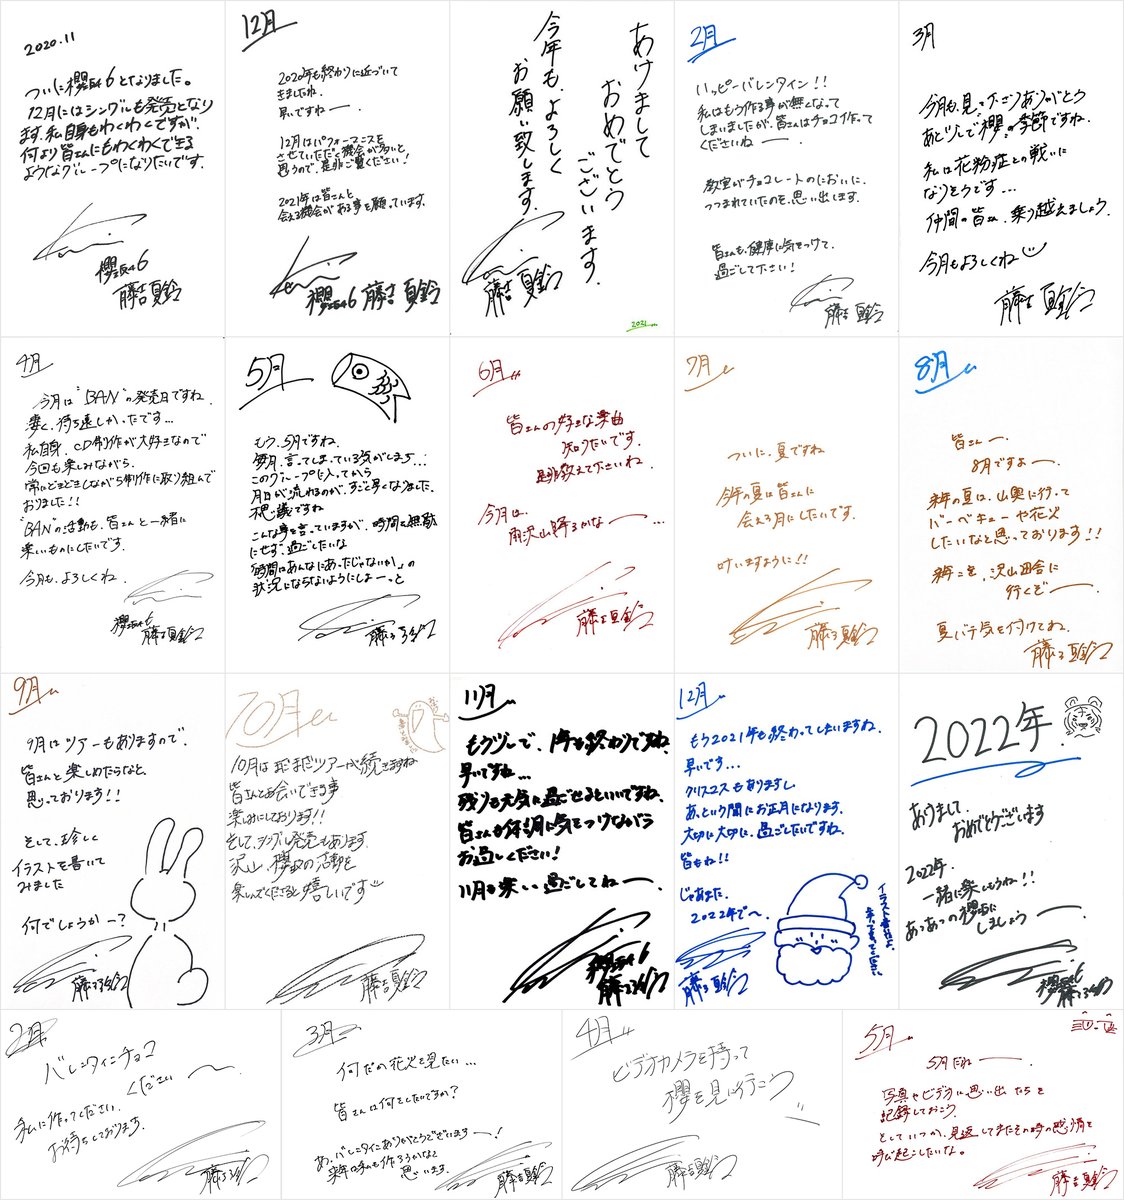 2020.11
ついに櫻坂46となりました。
12月にはシングルも発売となり
ます。私自身もわくわくですが、
何より皆さんにもわくわくできる
ようなグループになりたいです。
櫻坂46
藤吉夏鈴
12月
2020年も終わりに近づいて
きましたね。
早いですねー。
12月はパフォーマンスを
させていただく機会が多いと
思うので、是非ご覧ください！
2021年は皆さんと
会える機会がある事を願っています。
櫻坂46 藤吉夏鈴
あけまして
おめでとう
ございます。
今年も、よろしく
お願い致します。
藤吉夏鈴
2021
2月
ハッピーバレンタイン！！
私はもう作る事が無くなって
しまいましたが、皆さんはチョコ作って
くださいねー。
教室がチョコレートのにおいに、
つつまれていたのを、思い出します。
皆さんも、健康に気をつけて、
過ごして下さい！
藤吉夏鈴
3月
今月も、見って下さりありがとう
あと少しで櫻の季節ですね。
私は花粉症との戦いに
なりそうです…
仲間の皆さん、乗り越えましょう。
今月もよろしくね
藤吉夏鈴
4月
今月は"BAN"の発売日ですね。
凄く、待ち遠しかったです…
私自身、CD制作が大好きなので
今回も楽しみながら、
常にどきどきしながら制作に取り組んで
おりました！！
"BAN"の活動も、皆さんと一緒に
楽しいものにしたいです。
今月も、よろしくね。
櫻坂46
藤吉夏鈴
5月
もう、5月ですね。
毎月、言ってしまっている気がしまう…
このグループに入ってから
月日が流れるのが、すごく早くなりました。
不思議ですね
こんな事を言っていますが、時間を無駄
にせず、過ごしたいな
「時間はあんなにあったじゃないか」の
状況にならないようにしよーっと
藤吉夏鈴
6月
皆さんの好きな楽曲
知りたいです。
是非教えて下さいね。
今月は、
雨沢山降るかなー…
藤吉夏鈴
7月
ついに、夏ですね
今年の夏は皆さんに
会える月にしたいです。
叶いますように！！
藤吉夏鈴
8月
皆さんー。
8月ですよー。
来年の夏は、山奥に行って
バーベキューや花火
したいなと思っております！！
来年こそ、沢山田舎に
行くぞー。
夏バテ気を付けてね。
藤吉夏鈴
9月
9月にはツアーもありますので、
皆さんと楽しめたらなと、
思っております！！
そして、珍しく
イラストを書いて
みました
何でしょうかー？
藤吉夏鈴
10月
10月はまだまだツアーが続きますね
皆さんとお会いできる事
楽しみにしております！！
そして、シングル発売もあります。
沢山、櫻坂の活動を
楽しんでくださると嬉しいです
藤吉夏鈴
11月
もう少しで、1年も終わりですね。
早いですね…
残りも元気に過ごせるといいですね。
皆さんも体調に気をつけながら
お過しください！
11月も楽しい過ごしてねー。
櫻坂46
藤吉夏鈴
12月
もう2021年も終わってしまいますね。
早いです…
クリスマスもありますし
あっという間にお正月になります。
大切に大切に、過ごしたいですね。
皆もね！！
じゃあまた
2022年で〜。
藤吉夏鈴
2022年
あけまして、
おめでとうございます
2022年、
一緒に楽しもうね！！
あつあつの櫻坂に
しましょうー
櫻坂46
藤吉夏鈴
2月
バレンタインチョコ
くださいー
私に作ってください。
お待ちしております。
藤吉夏鈴
3月
何だか花火を見たい…
皆さんは何をしたいですか？
あ、バレンタインありがとうございますー！
来年は私も作ろうかなと
思います。
藤吉夏鈴
4月
ビデオカメラを持って
櫻を見に行こう
藤吉夏鈴
5月
5月だねー
写真やビデオに思い出たちを
記録しておこう
そしていつか、見返してまたその時の感情を
呼び起こしたいな。
藤吉夏鈴